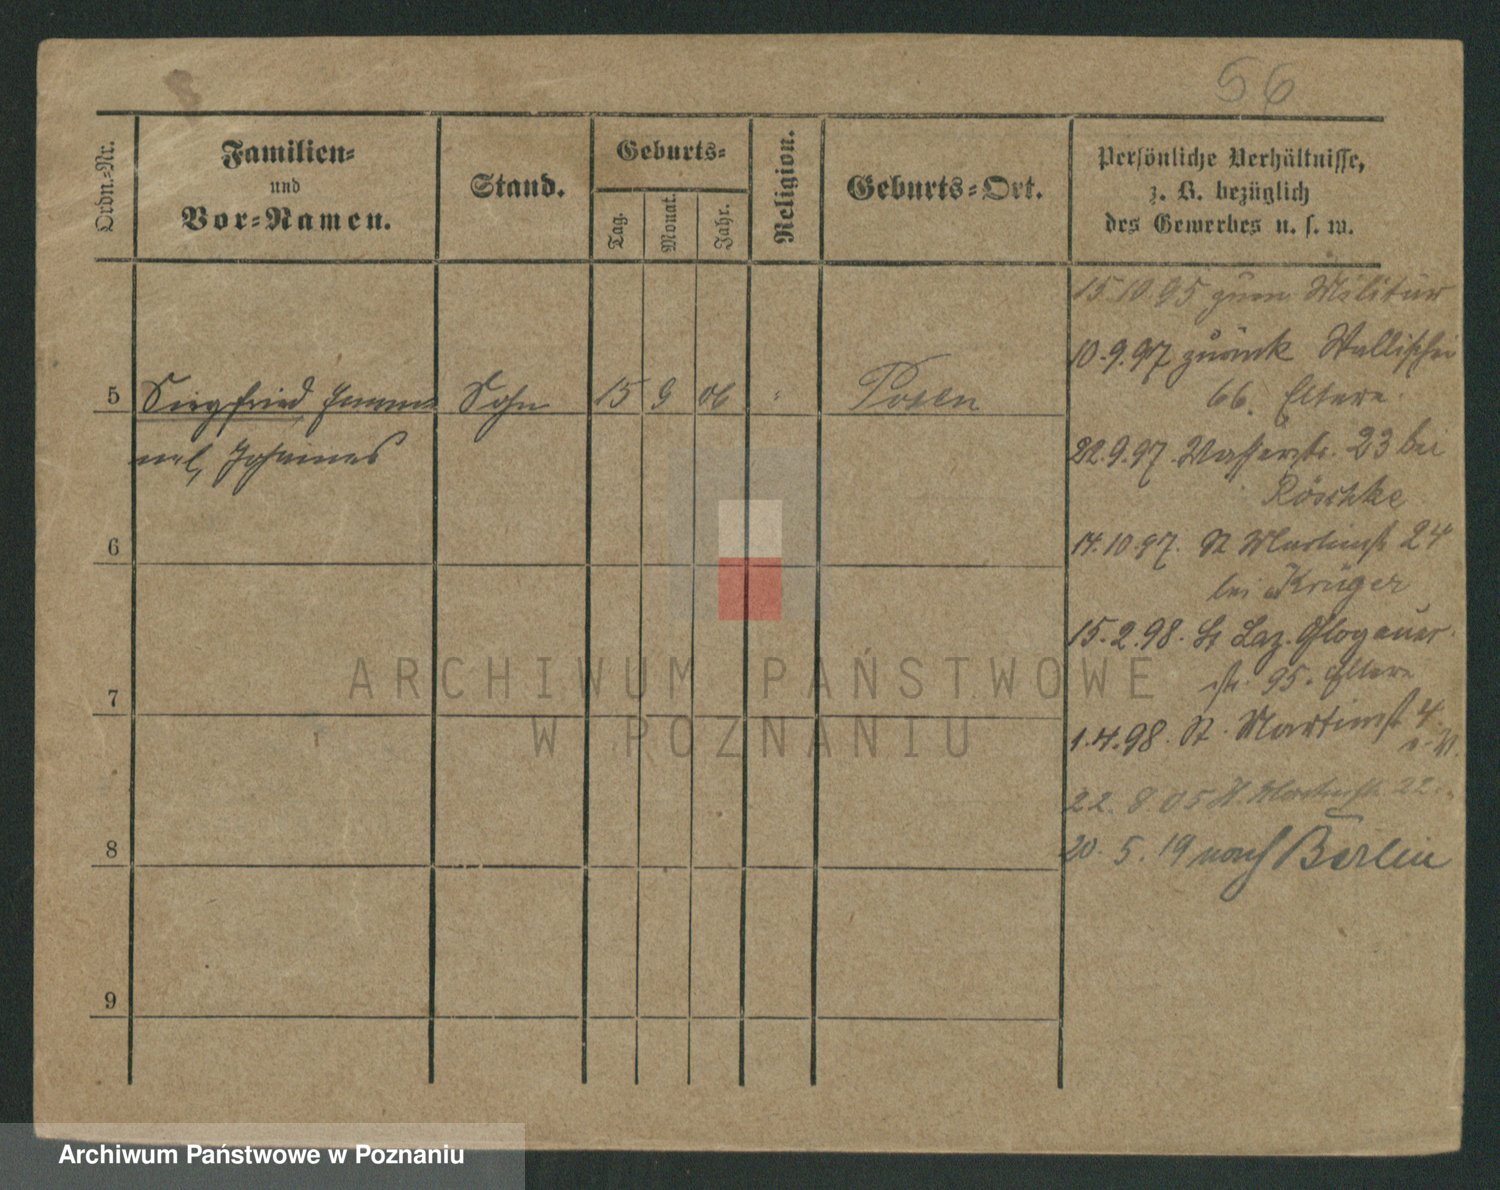 56
Ordn.-Nr.
Familien-
und
Vor-Namen.
Stand.
Geburts-
Tag.
Monat.
Jahr.
Religion.
Geburts-Ort.
Persönliche Verhältnisse,
z. B. bezüglich
des Gewerbes u. s. w.
5
Siegfried Emma-
nuel, Johannes
Sohn
15
9
06
"
Posen
6
7
8
9
15.10.95 zum Militär
10.9.97 zurück Wallischei
66. Eltern.
22.9.97. Wasserstr. 23 bei
Röschke
14.10.97. St Martinst 24
bei Krüger
15.2.98. St Laz. Glogauer-
str. 95. Eltern
1.4.98. St. Martinst 4
22.8.05 St. Martinstr. 22
20.5.19 nach Berlin
ARCHIWUM PAŃSTWOWE
W POZNANIU
Archiwum Państwowe w Poznaniu